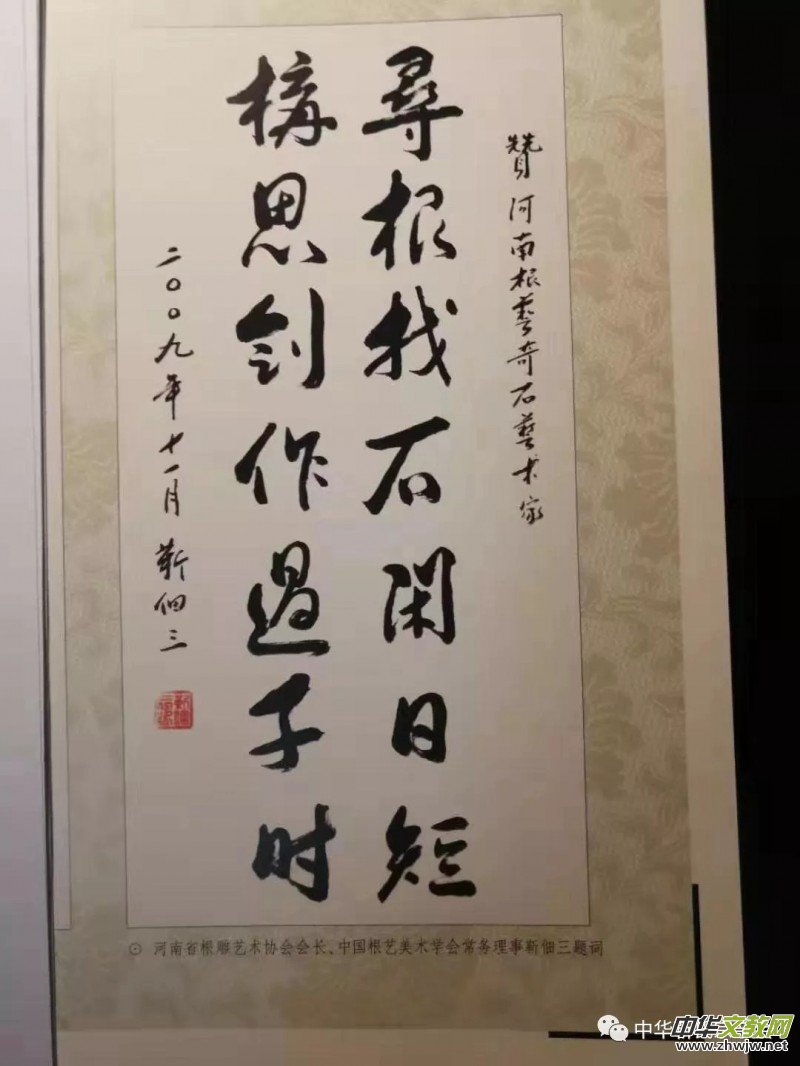 贊河南根藝奇石藝术家
尋根找石閑日短
構思创作過子时
二〇〇九年十一月 靳佃三
⊙ 河南省根雕艺术协会会长、中国根艺美术学会常务理事靳佃三题词
中华文教网
www.zhwjw.net